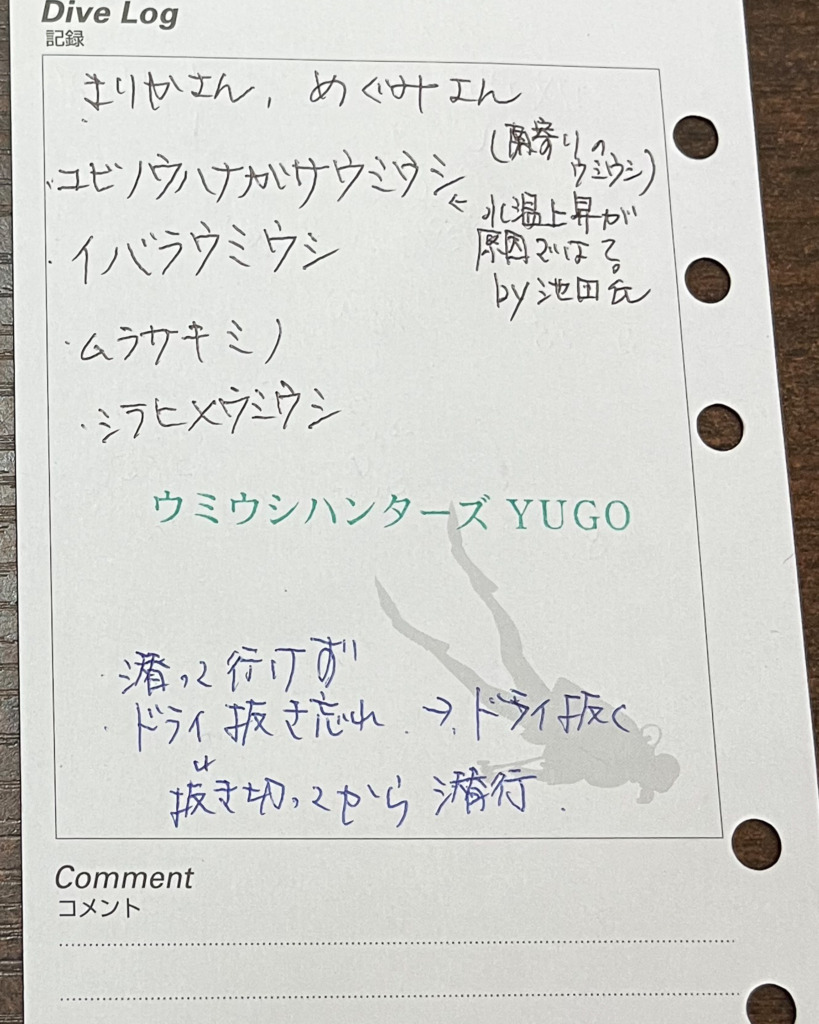 Dive Log
記録
まりかさん, めぐみさん
・コビノウハナガサウミウシ
(南寄りの
ウミウシ)
← 水温上昇が
原因では?
by 池田氏
・イバラウミウシ
・ムラサキミノ
・シラヒメウミウシ
ウミウシハンターズ YUGO
・潜って行けず
・ドライ抜き忘れ → ドライ抜く
抜き切ってから 潜行.
Comment
コメント